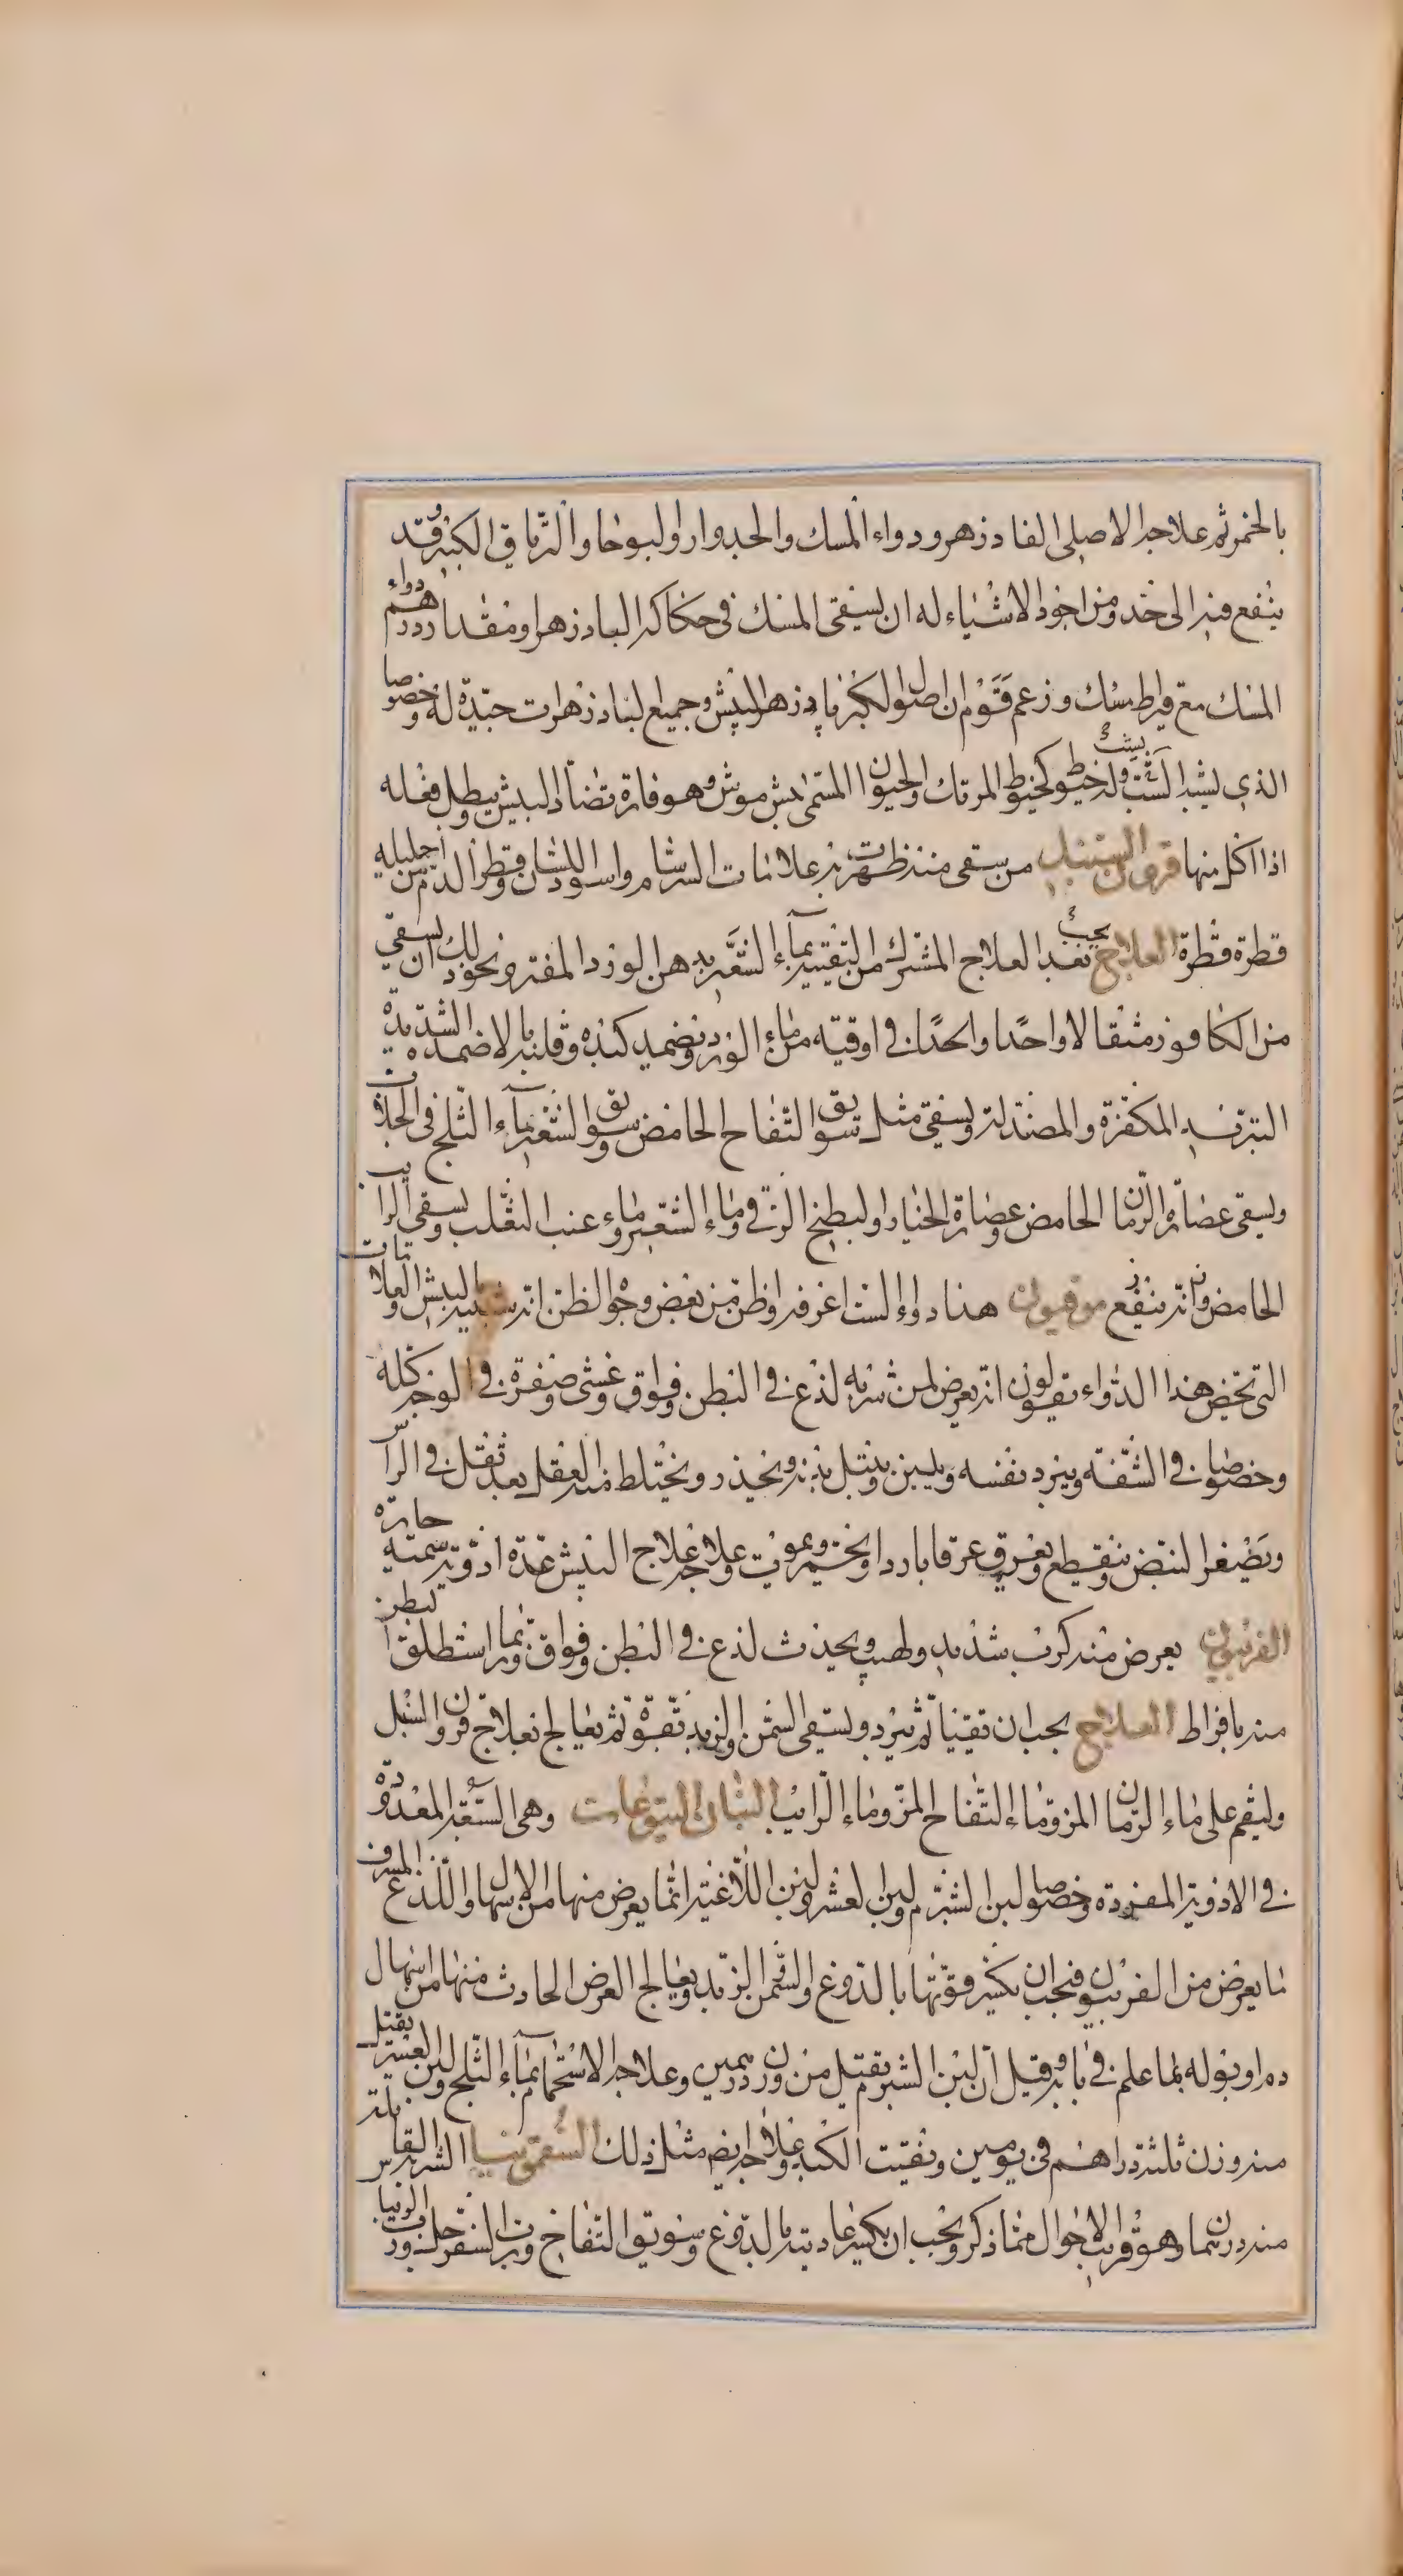 بالخمر ثم علاجه الاصلي الفادزهر ودواء المسك والجدوار والبوحا والترياق الكبير وقد
ينفع فيه الى حد ومن اجود الاشياء له ان يسقى المسك في حكاكه البادزهر او مقدار درهم دواء
المسك مع قيراط مسك وزعم قوم ان اصول الكبر پادزهر البيش وجميع البادزهرات جيدة له وخصوصا
الذي يشبه الشب وله خيوط كخيوط المرتك والحيوان المسمى بيش موش وهو فارة تضاد البيش ويبطل فعله
اذا اكل منها قرون السنبل من سقى منه ظهرت به علامات السرسام واسود اللسان وقطر الدم من احليله
قطرة قطرة العلاج يجب بعد العلاج المشترك من التقيية بماء الشعير ودهن الورد المفتر ونحو ذلك ان يسقى
من الكافور مثقالا واحدا واحدا في اوقيه من ماء الورد وتضمد كبده وقلبه بالاضمده الشديدة
التبريد المكفرة والمصندلة ويسقى مثل سويق التفاح الحامض وسويق الشعير بماء الثلج في الجلاب
ويسقى عصارة الرمان الحامض وعصارة الخيار او البطيخ الرقي وماء الشعير وماء عنب الثعلب ويسقى الرايب
الحامض فانه ينفع هذا دواء لست اعرفه واظن من بعض وجوه الظن انه شبيه بالبيش والعلامات
التي تخص هذا الدواء يقولون انه يعرض لمن شربه لذع في البطن وفواق وغشى وصفرة في الوجه كله
وخصوصا في الشفة ويبرد نفسه ويلين ويثقل بدنه ويخدر ويختلط منه العقل بعد ثقل في الراس
ويصغر النبض وينقطع ويعرق عرقا باردا ويموت وعلاجه علاج البيش عدة ادوية سمية حارة
الفربيون يعرض منه كرب شديد ولهيب ويحدث لذع في البطن وفواق وربما استطلق البطن
منه بافراط العلاج يجب ان تقيا ثم يبرد ويسقى السمن والزبد بقوة ثم يعالج بعلاج قرون السنبل
وليقم على ماء الرمان المز وماء التفاح المز وماء الرايب البان اليتوعات وهي السبعة المعدودة
في الادوية المفردة وخصوصا لبن الشبرم ولبن العشر ولبن اللاغية انما يعرض منها من الاسهال واللذع المسرف
ما يعرض من الفربيون فيجب ان تكسر قوتها بالدوغ والسمن والزبد ويعالج العرض الحادث منها من اسهال
دم او بوله بما علم في بابه وقيل ان لبن الشبرم يقتل من وزن درهمين وعلاجه الاستحمام بماء الثلج ولبن العشر يقتل
منه وزن ثلثة دراهم في يومين وتفتيت الكبد وعلاجه ايضا مثل ذلك السقمونيا الشربة القاتلة
منه درهمان وهو قريب الاحوال مما ذكر ويجب ان تكسر عاديته بالدوغ وسويق التفاح ورب السفرجل ورب الريباس